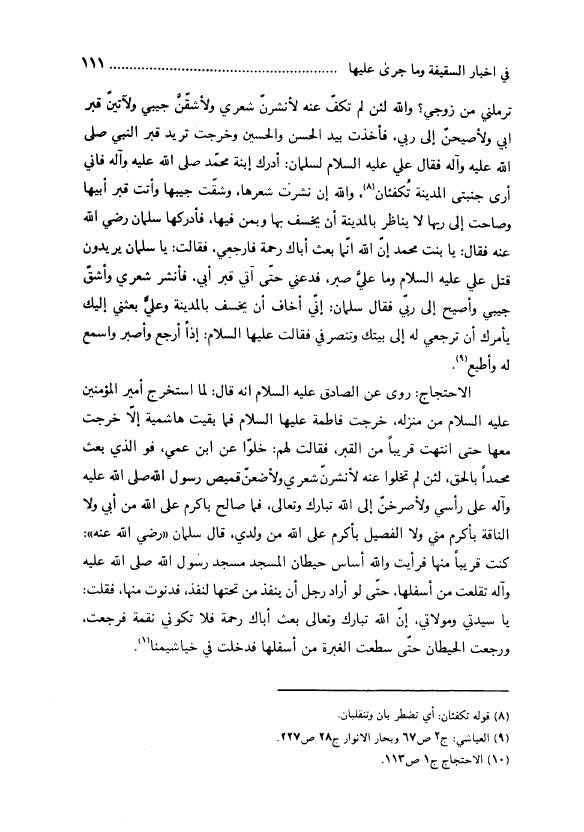 في اخبار السقيفة وما جرىٰ عليها ........................................................ ١١١
ترملني من زوجي؟ والله لئن لم تكفّ عنه لأنشرنّ شعري ولأشقّنَّ جيبي ولآتينّ قبر
ابي ولأصيحنّ إلى ربي، فأخذت بيد الحسن والحسين وخرجت تريد قبر النبي صلى
الله عليه وآله فقال علي عليه السلام لسلمان: أدرك إبنة محمّد صلى الله عليه وآله فاني
أرى جنبتى المدينة تُكفئان(٨)، والله إن نشرت شعرها، وشقّت جيبها وأتت قبر أبيها
وصاحت إلى ربها لا يناظر بالمدينة أن يخسف بها وبمن فيها، فأدركها سلمان رضي الله
عنه فقال: يا بنت محمد إنّ الله انّما بعث أباك رحمة فارجعي، فقالت: يا سلمان يريدون
قتل علي عليه السلام وما عليَّ صبر، فدعني حتّى آتي قبر أبي، فأنشر شعري وأشقّ
جيبي وأصيح إلى ربّي فقال سلمان: إنّي أخاف أن يخسف بالمدينة وعليٌّ بعثني إليك
يأمرك أن ترجعي له إلى بيتك وتنصر في فقالت عليها السلام: إذاً أرجع وأصبر واسمع
له وأطيع(٩).
الاحتجاج: روى عن الصادق عليه السلام انه قال: لما استخرج أمير المؤمنين
عليه السلام من منزله، خرجت فاطمة عليها السلام فما بقيت هاشمية إلّا خرجت
معها حتى انتهت قريباً من القبر، فقالت لهم: خلوّا عن ابن عمي، فو الذي بعث
محمداً بالحق، لئن لم تخلوا عنه لأنشرنّ شعري ولأضعنّ قميص رسول الله صلى الله عليه
وآله على رأسي ولأصرخنّ إلى الله تبارك وتعالى، فما صالح باكرم على الله من أبي ولا
الناقة بأكرم مني ولا الفصيل بأكرم على الله من ولدي، قال سلمان «رضي الله عنه»:
كنت قريباً منها فرأيت والله أساس حيطان المسجد مسجد رسول الله صلى الله عليه
وآله تقلعت من أسفلها، حتّى لو أراد رجل أن ينفذ من تحتها لنفذ، فدنوت منها، فقلت:
يا سيدتي ومولاتي، إنّ الله تبارك وتعالى بعث أباك رحمة فلا تكوني نقمة فرجعت،
ورجعت الحيطان حتّى سطعت الغبرة من أسفلها فدخلت في خياشيمنا(١٠).
(٨) قوله تكفئان: أي تضطر بان وتنقلبان.
(٩) العياشي: ج٢ ص٦٧ وبحار الانوار ج٢٨ ص٢٢٧.
(١٠) الاحتجاج ج١ ص١١٣.